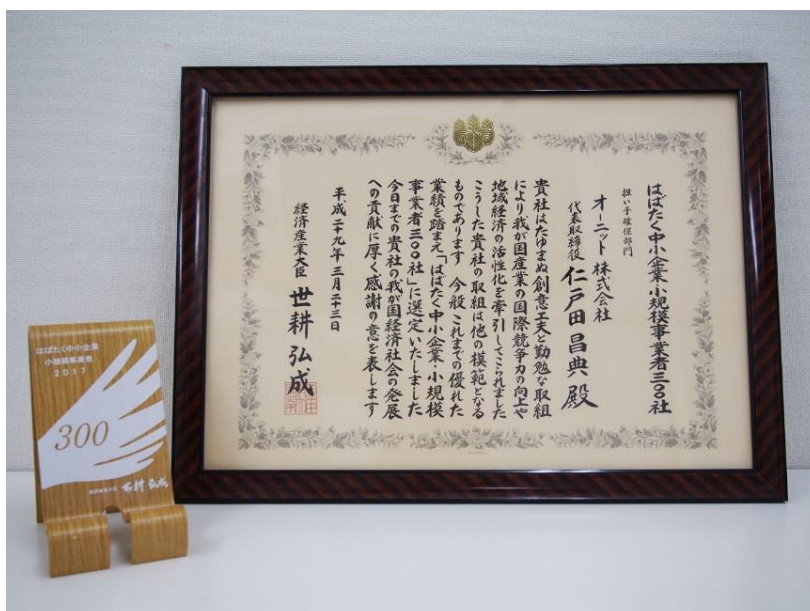 はばたく中小企業・小規模事業者三〇〇社
担い手確保部門
オーニット株式会社
代表取締役 仁戸田昌典 殿
貴社はたゆまぬ創意工夫と勤勉な取組
により我が国産業の国際競争力の向上や
地域経済の活性化を牽引してこられました
こうした貴社の取組は他の模範となる
ものであります 今般これまでの優れた
業績を踏まえ「はばたく中小企業・小規模
事業者三〇〇社」に選定いたしました
今日までの貴社の我が国経済社会の発展
への貢献に厚く感謝の意を表します
平成二十九年三月二十三日
経済産業大臣 世耕弘成
はばたく中小企業
小規模事業者
2017
300
経済産業大臣 世耕弘成